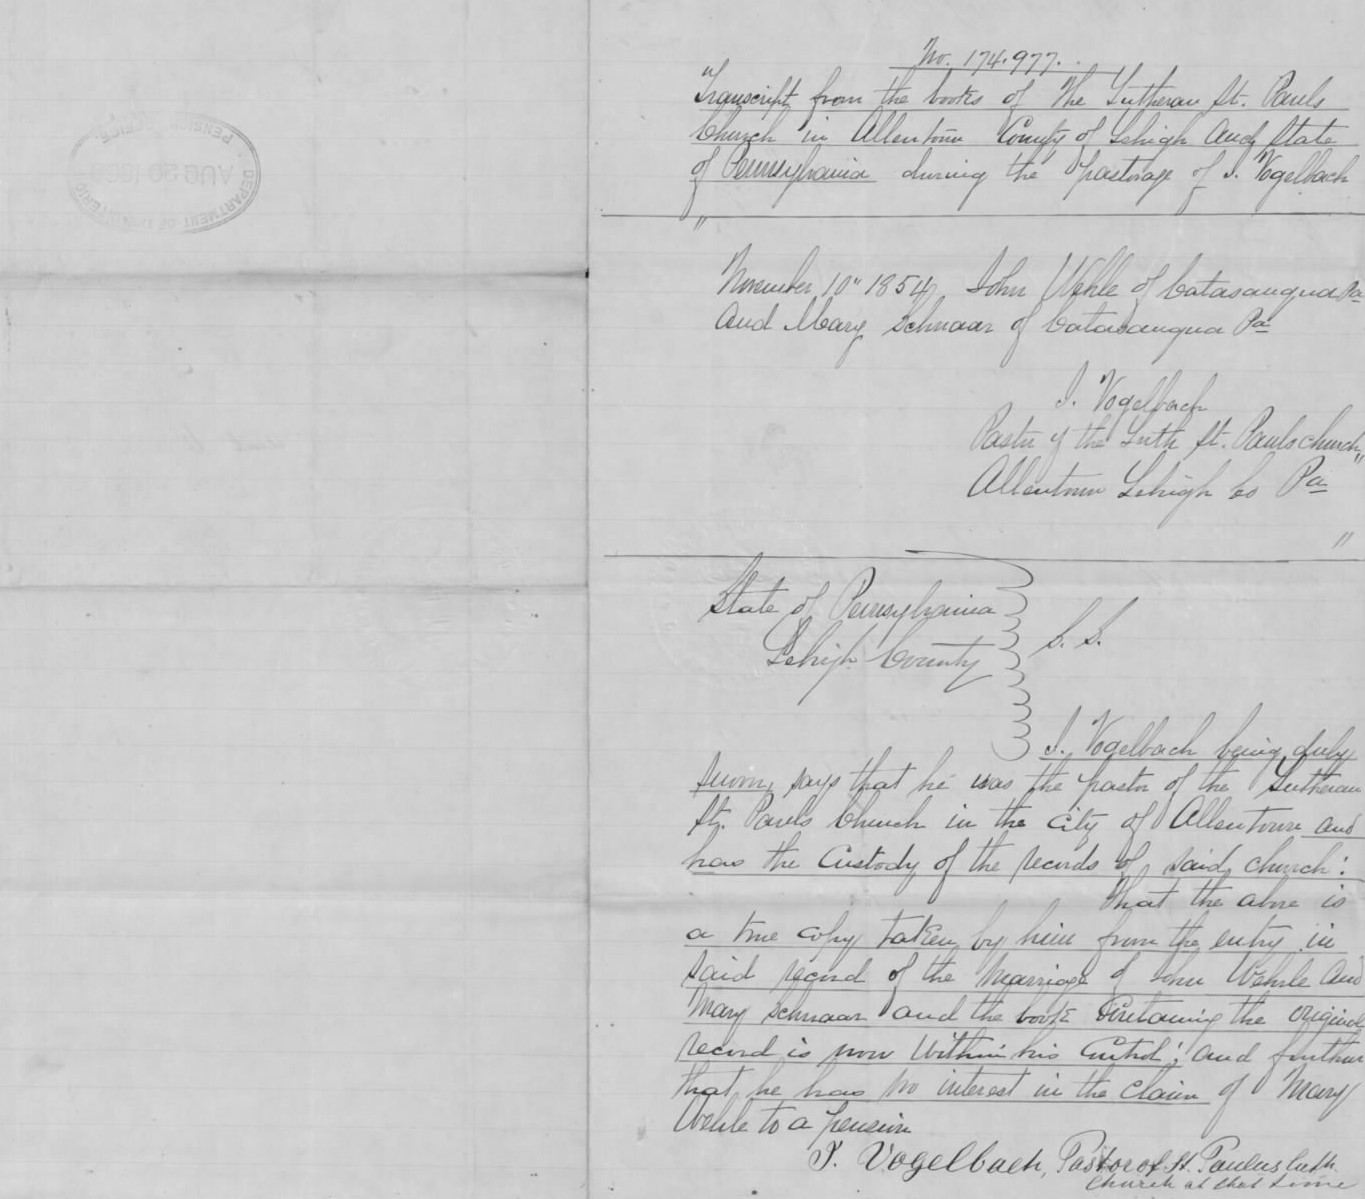 No. 174.977.
"Transcript from the books of the Lutheran St. Pauls
Church in Allentown County of Lehigh and State
of Pennsylvania during the pastorage of J. Vogelbach
"
November 10" 1854 John Wehle of Catasauqua Pa
and Mary Schnaar of Catasauqua Pa
J. Vogelbach
Pastor of the Luth St. Pauls church
Allentown Lehigh Co Pa
"
State of Pennsylvania
Lehigh County S.S.
J. Vogelbach being duly
sworn, says that he was the pastor of the Lutheran
St. Pauls Church in the city of Allentown and
has the custody of the records of said church:
that the above is
a true copy taken by him from the entry in
said record of the marriage of John Wehle and
Mary Schnaar and the book containing the original
record is now within his control; and further
that he has no interest in the claim of Mary
Wehle to a pension
J. Vogelbach, Pastor of St. Paulus Luth.
Church at that time
PENSION OFFICE.
AUG 20
DEPARTMENT OF THE INTERIOR